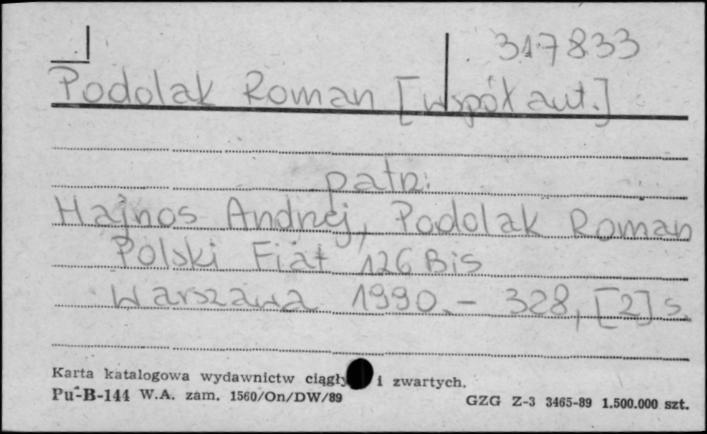 317833
Podolak Roman [współaut.]
patrz:
Hajnos Andrzej, Podolak Roman
Polski Fiat 126 Bis
Warszawa 1990. - 328, [2] s.
Karta katalogowa wydawnictw ciągły i zwartych.
Pu-B-144 W.A. zam. 1560/On/DW/89
GZG Z-3 3465-89 1.500.000 szt.